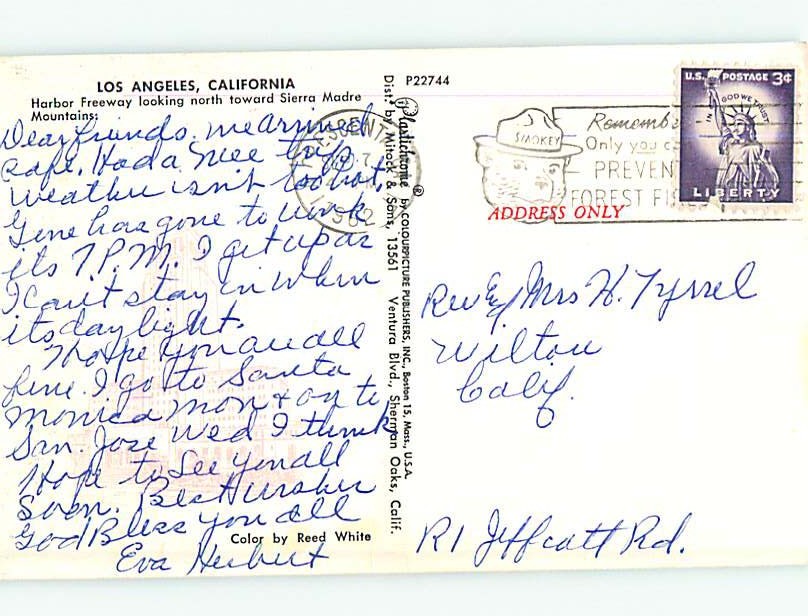 LOS ANGELES, CALIFORNIA
Harbor Freeway looking north toward Sierra Madre
Mountains.
Dear friends. we arrived
safe. Had a nice trip
weather isn't too hot,
Gene has gone to work
its 7 P.M. I get up as
I can't stay in when
its daylight.
Hope you are all
fine. I go to Santa
Monica Mon + on to
San. Jose Wed I think
Hope to See you all
Soon. Best wishes
God Bless you all
Eva Herbert
Color by Reed White
Dist. by Mitock & Sons, 13561 Ventura Blvd., Sherman Oaks, Calif.
Plastichrome ® by COLOURPICTURE PUBLISHERS, INC., Boston 15, Mass., U.S.A.
P22744
7
1962
SMOKEY
Rememb
Only you ca
PREVEN
FOREST FI
ADDRESS ONLY
U.S. POSTAGE 3¢
IN GOD WE TRUST
LIBERTY
Rev & Mrs H. Tyrrel
Wilton
Calif.
R1 Jeffcott Rd.